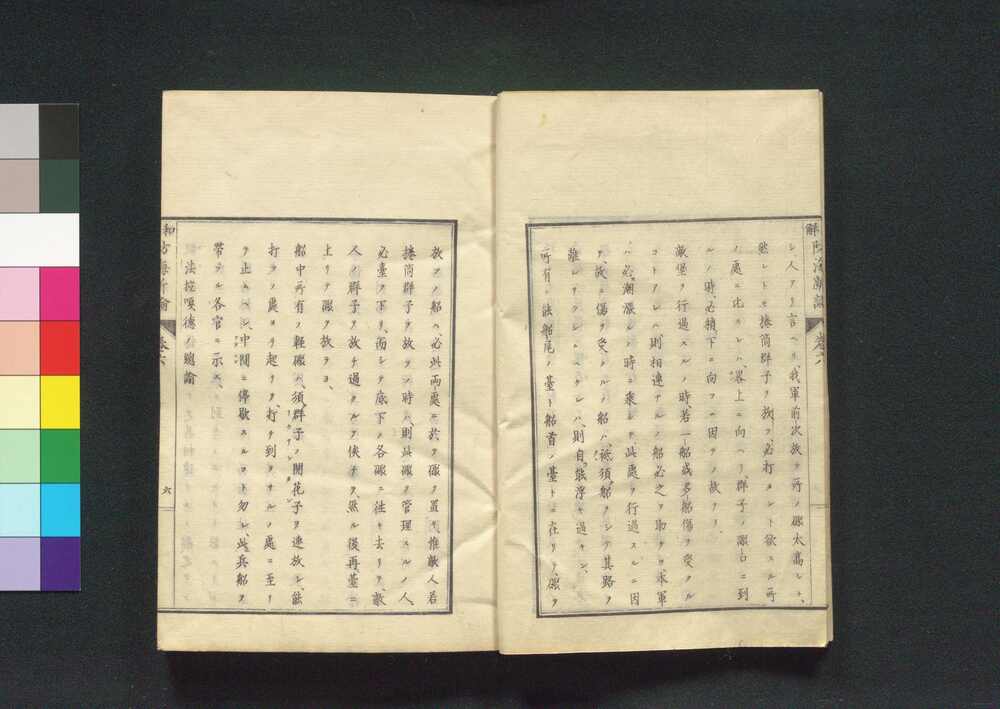 シ人アリ言ヘリ、我軍前次放ツ所ノ礮太高シト、
然レトモ捲筒群子ヲ放ツ、必打タント欲スル所
ノ處ニ比スレハ、畧上ニ向ヘリ、群子ノ礮台ニ到
ルノ時、必損下ニ向フニ因テノ故ナリ、
敵堡ヲ行過スルノ時、若一船或多船傷ヲ受クル
コトアレハ、則相連ナルノ船必之ヲ助ク、水軍
ハ必潮漲シノ時ニ乘シ、此處ヲ行過スルニ因
テ、故ニ傷ヲ受クルノ船ハ、祗須船ヲシテ其路ヲ
離レサラシムヘクレハ、則自能浮ヒ過キン、
所有ノ法船尾ノ臺ト船首ノ臺トニ在リテ、礮ヲ
放ツノ船ハ、必此兩處ニ於テ礮ヲ置キ、惟敵人若
捲筒群子ヲ放ツノ時ハ、則此礮ヲ管理スルノ人、
必臺ヲ下リ、而シテ底下ノ各礮ニ往キ去リテ、敵
人ノ群子ヲ放チ過クルヲ俟チテ、然ル後再臺ニ
上リテ礮ヲ放ツヨ、
船中所有ノ輕礮ハ、須群子ノ開花子ヲ連放シ、能
打ツノ處ヨリ起リテ、打チ到ラサルノ處ニ至リ
テ止ムヘシ、中間ニ停歇スルコト勿レ、此兵船ヲ
帶フル各官ニ示ス、
法拉嘎德ノ總論
卷六
六